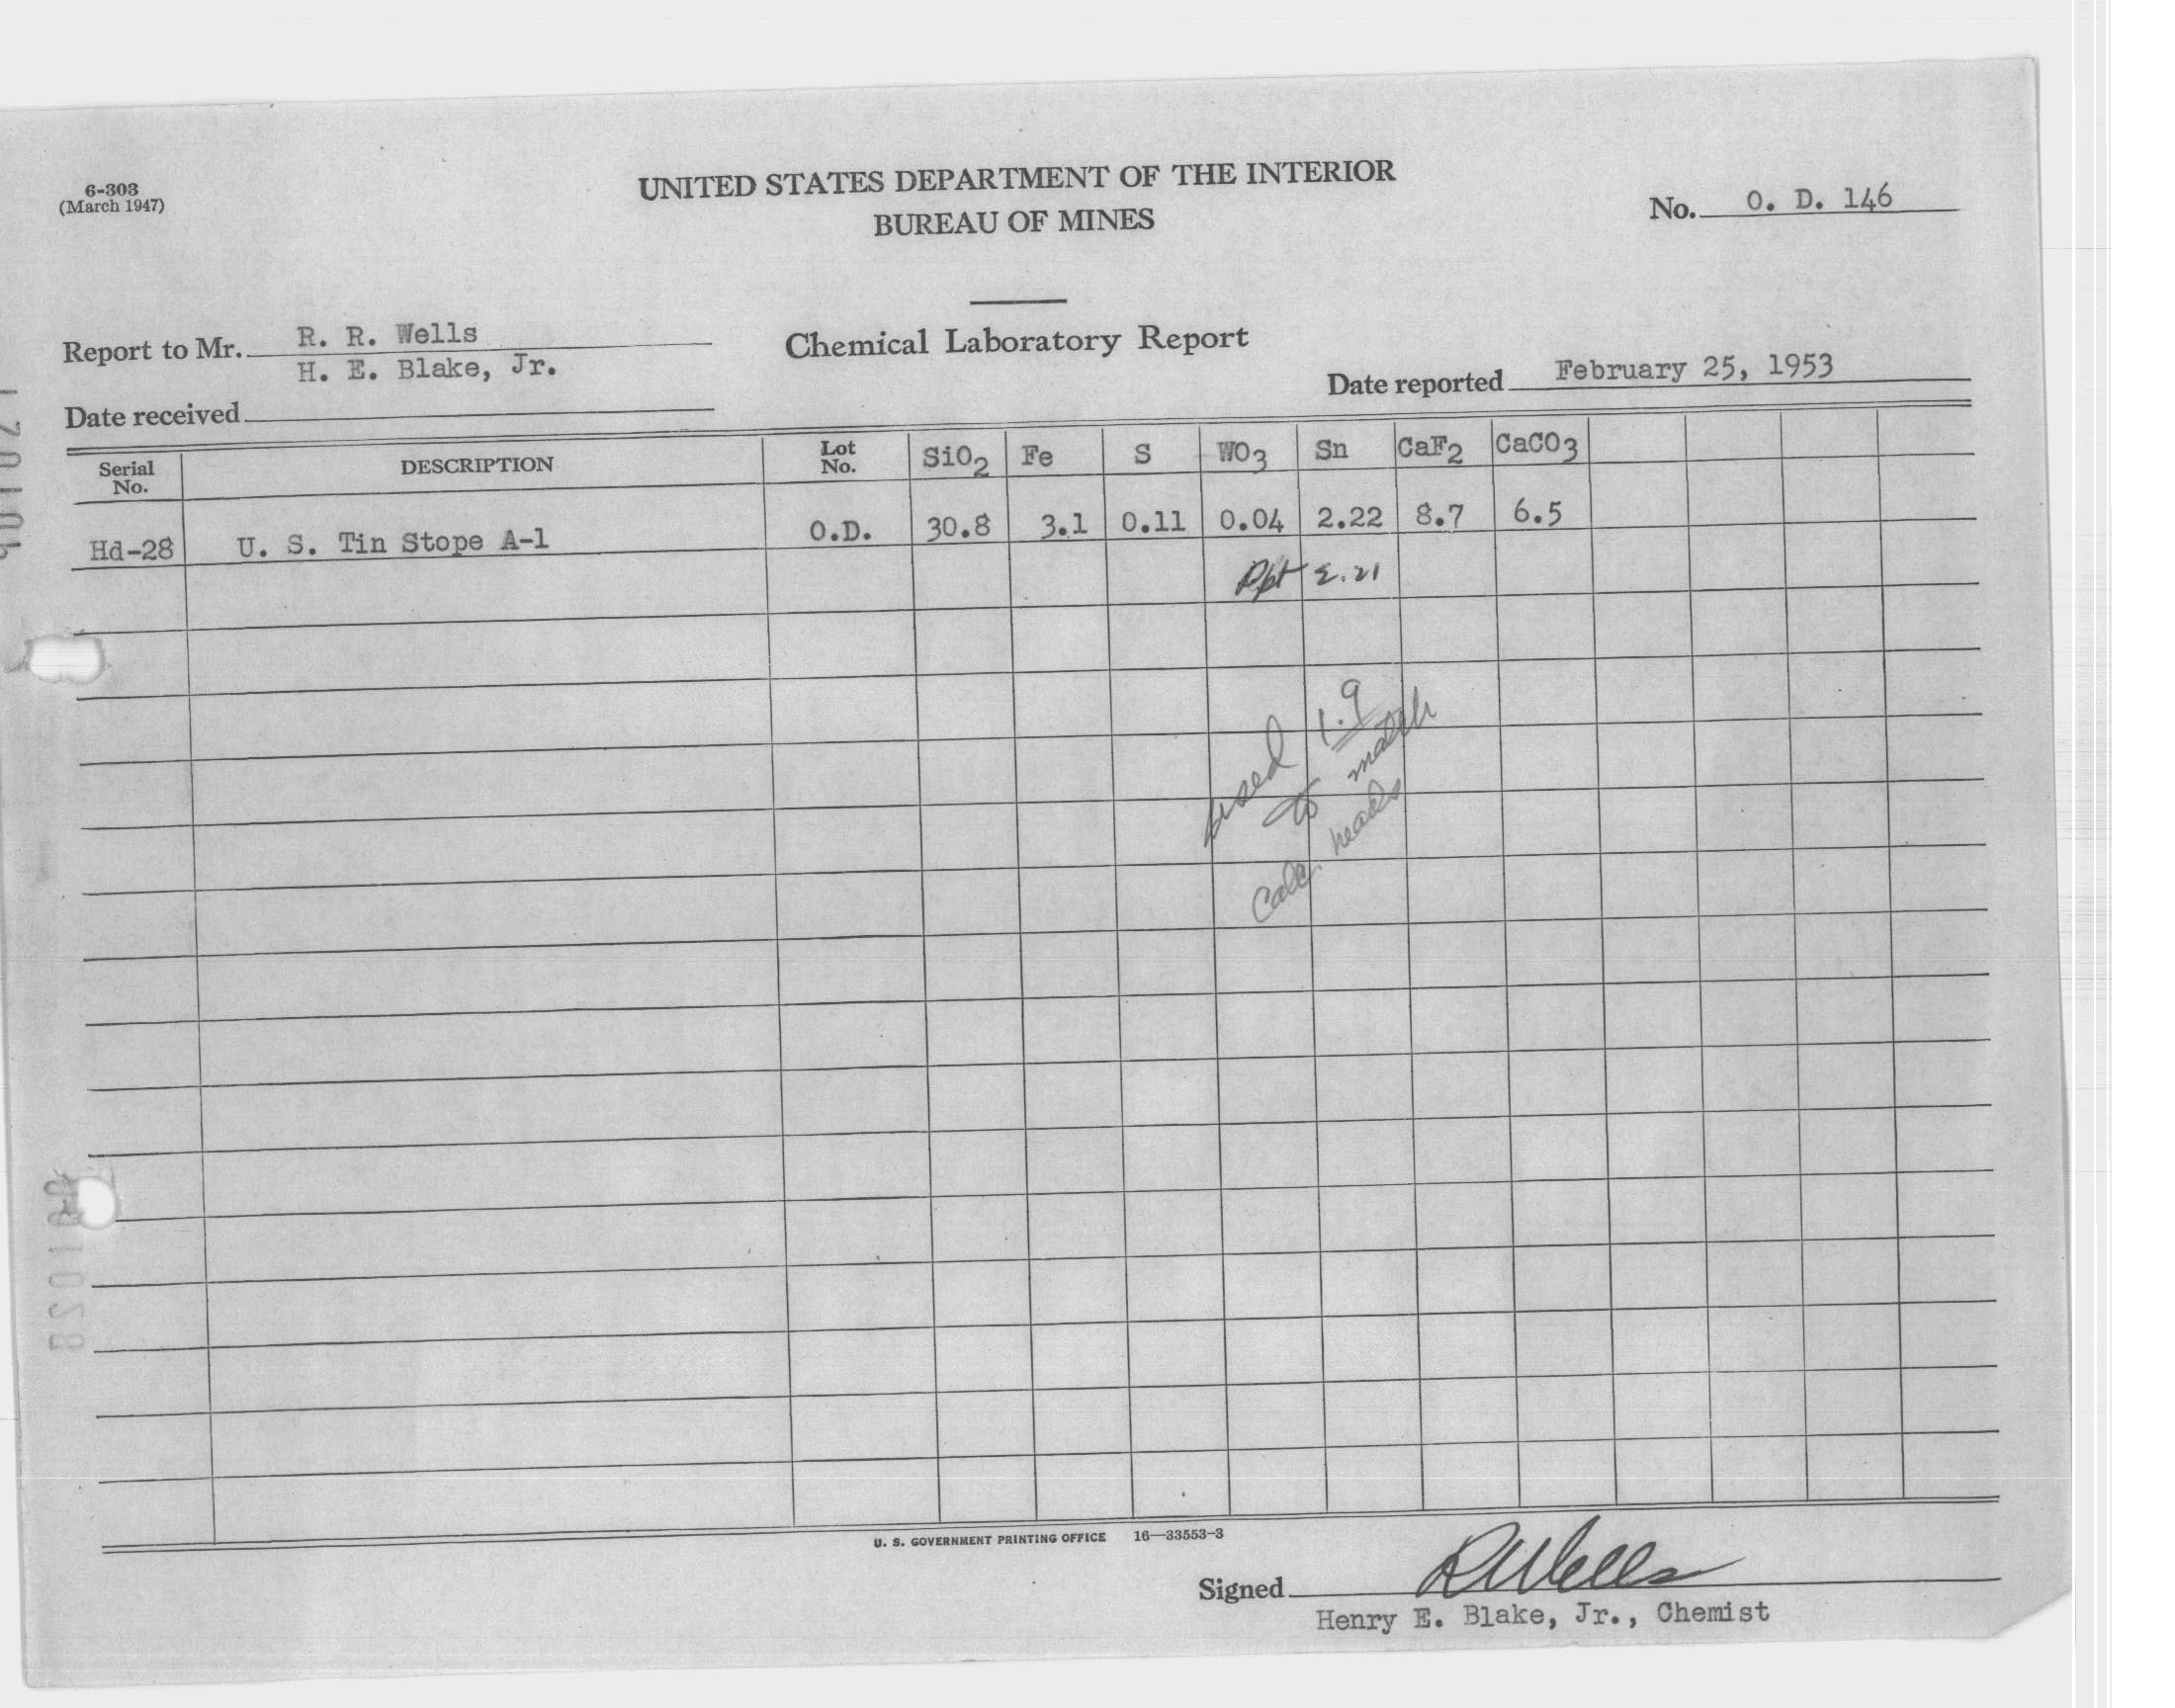 6-303
(March 1947)
UNITED STATES DEPARTMENT OF THE INTERIOR
BUREAU OF MINES
No. O. D. 146
Report to Mr. R. R. Wells
H. E. Blake, Jr.
Chemical Laboratory Report
Date reported February 25, 1953
Date received
Serial No. DESCRIPTION Lot No. SiO2 Fe S WO3 Sn CaF2 CaCO3
Hd-28 U. S. Tin Stope A-1 O.D. 30.8 3.1 0.11 0.04 2.22 8.7 6.5
Rpt 2.21
used 1.9
to match
calc. heads
U. S. GOVERNMENT PRINTING OFFICE 16—33553-3
Signed RWells
Henry E. Blake, Jr., Chemist